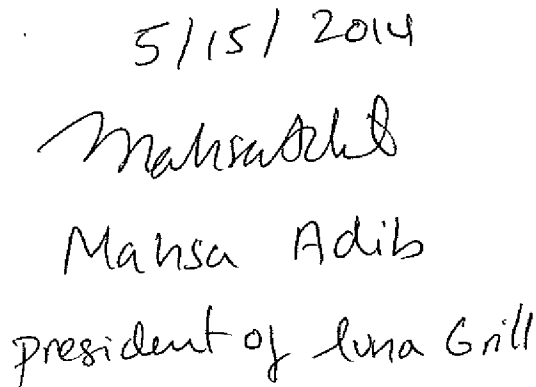 5/15/2014
Mahsa Adib
Mahsa Adib
president of luna Grill